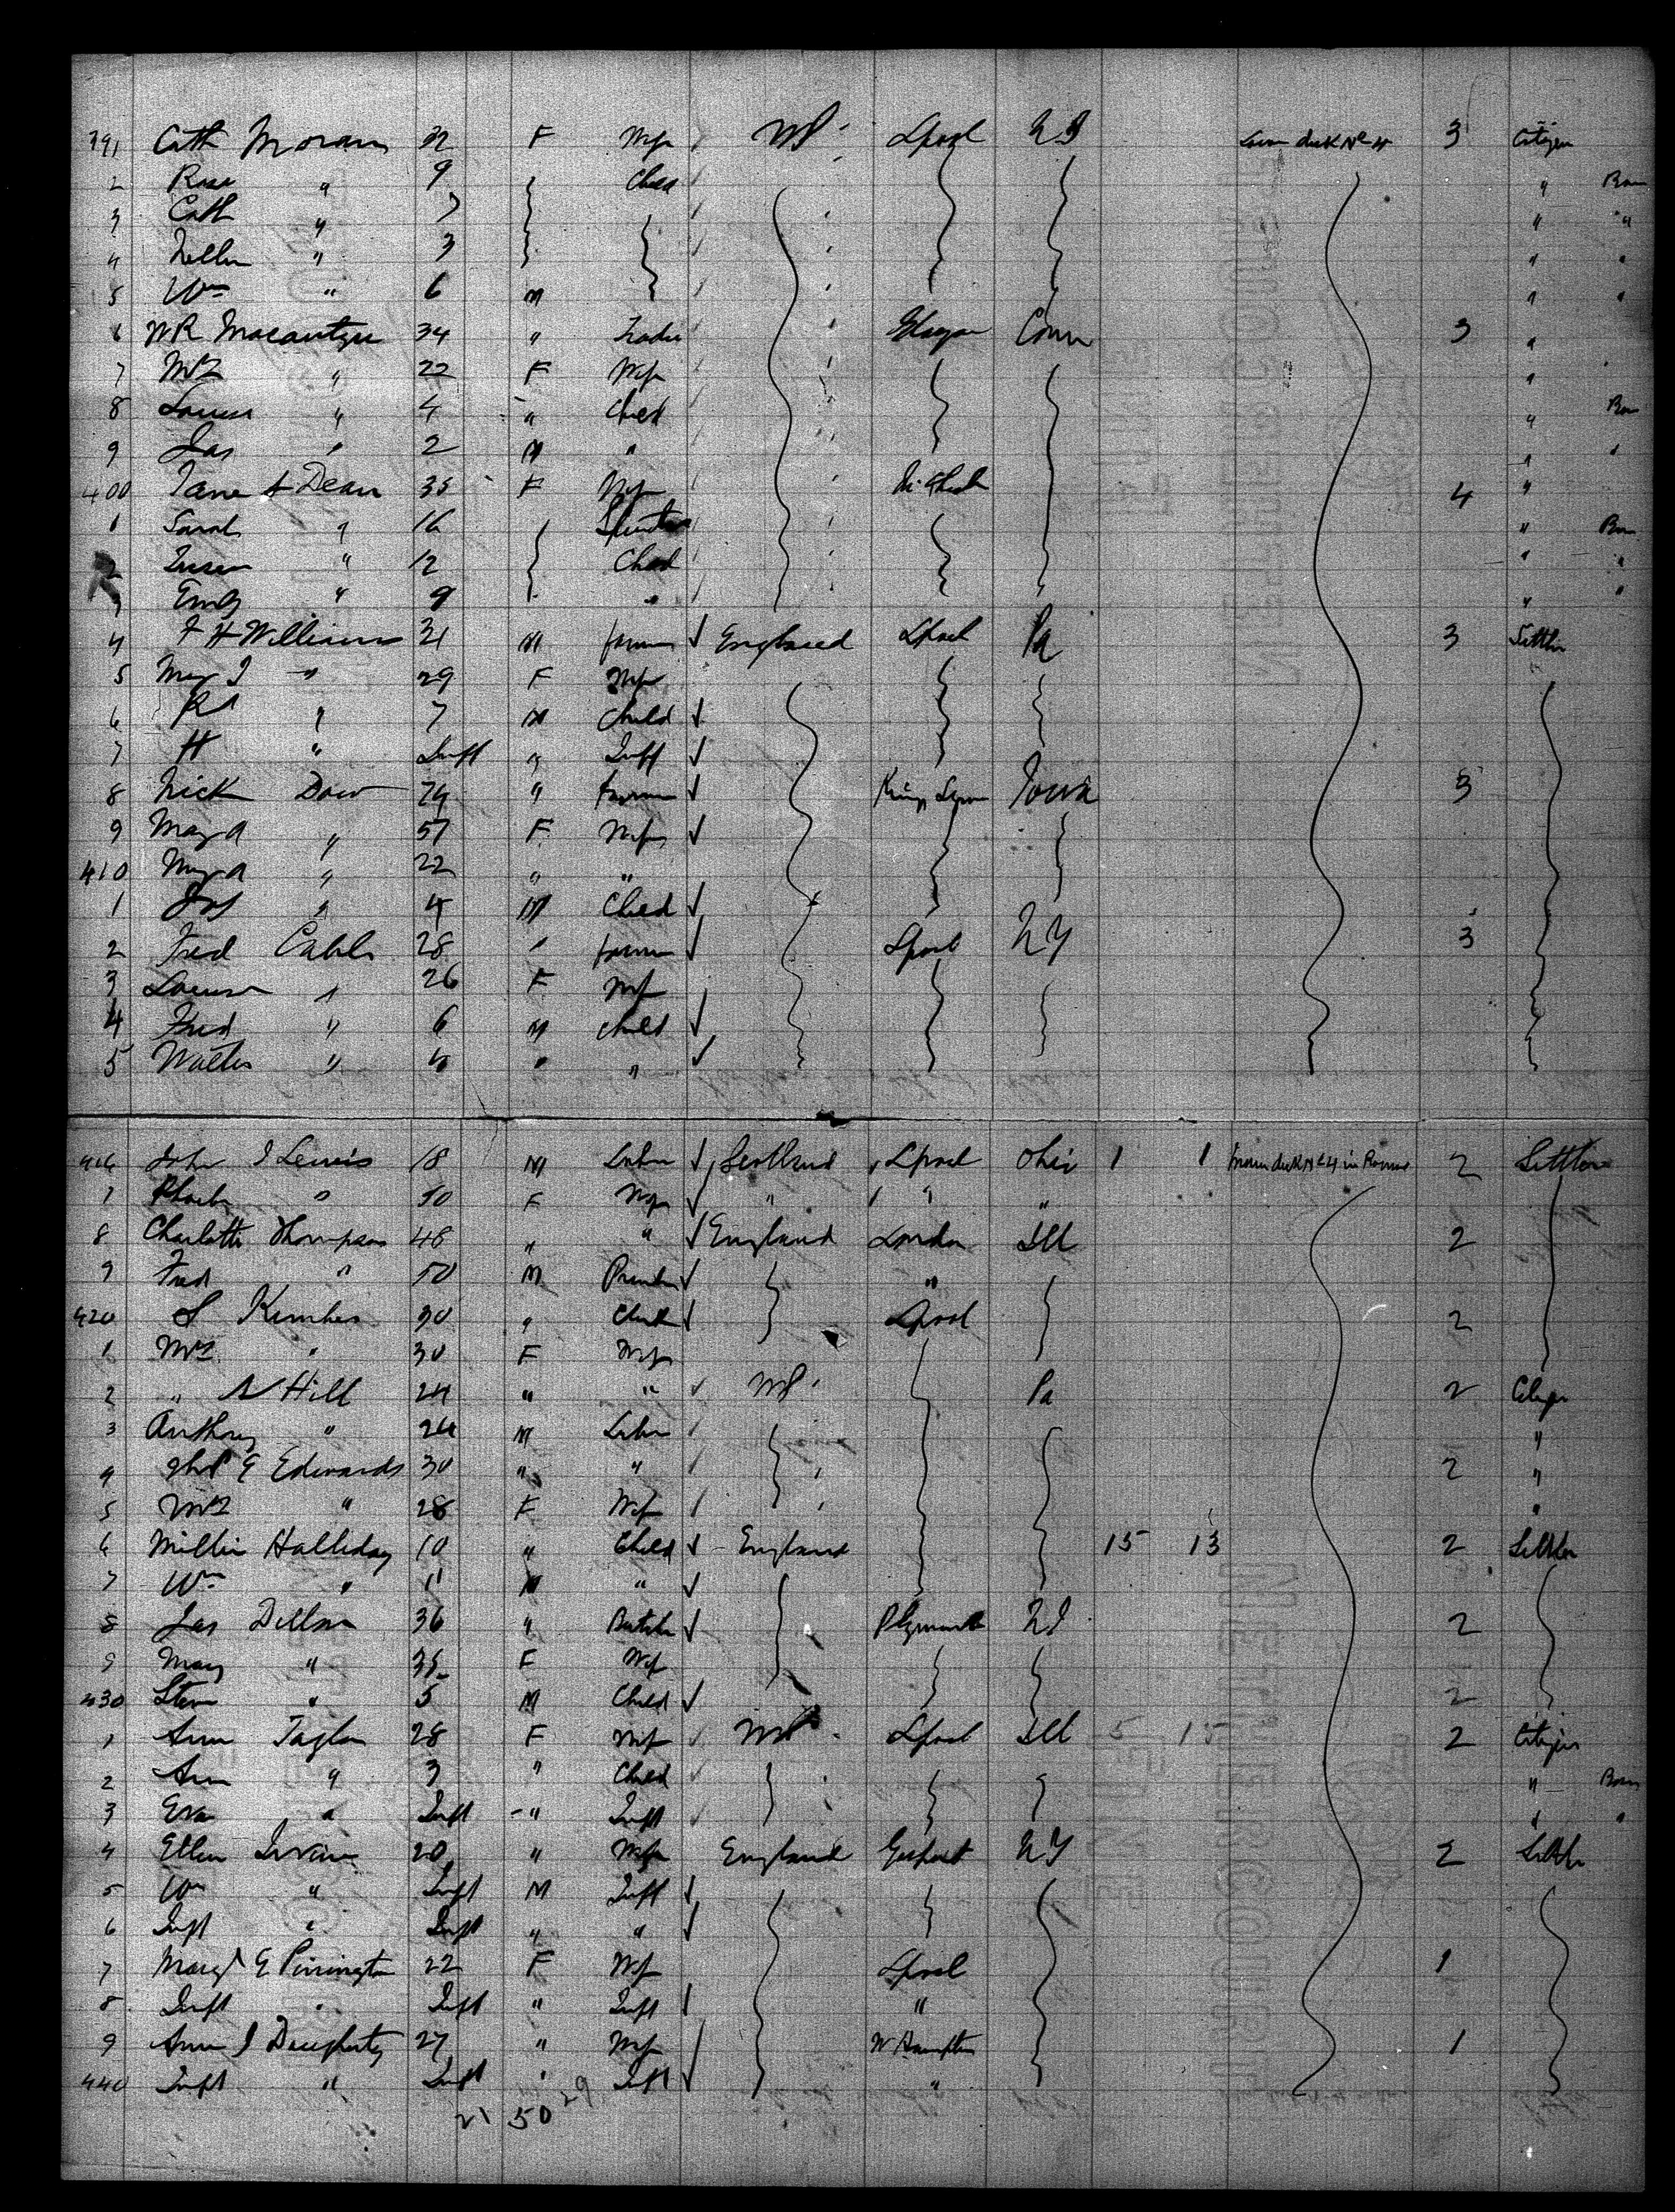 391 Cath Moran 32 F Wife US Lpool NJ Lower deck No 4 3 Citizen
2 Rose " 9 Child " Born
3 Cath " 7 " "
4 Nellie " 3 " "
5 Wm " 6 M " "
6 WR 34 " Glasgow Conn 3 "
7 Mrs " 22 F Wife "
8 " 4 " Child " Born
9 Jas " 2 M " " "
400 Jane A Dean 35 F Wife 4 "
1 Sarah " 16 Spinster " Born
2 Susan " 12 Child " "
3 Emily " 9 " " "
4 F H Williams 31 M farmer England Lpool Pa 3 Settler
5 Mary J " 29 F Wife
6 " 7 M Child
7 H " Inft " Inft
8 Nick Daw " farmer Iowa 3
9 Mary A " 57 F Wife
410 Mary A " 22 " "
1 " 4 M Child
2 Fred 28 " farmer Lpool NY 3
3 Louisa " 26 F Wife
4 Fred " 6 M Child
5 Walter " " "
416 John J Lewis 18 M Labr Scotland Lpool Ohio 1 1 2 Settler
7 Phoebe " F Wife " " "
8 Charlotte Thompson 48 " " England London Ill 2
9 Fred " 50 M "
420 S Kimber 30 " Clerk Lpool 2
1 Mrs " 30 F Wife
2 " A Hill 24 " " US Pa 2 Citizen
3 Anthony " 26 M Labr "
4 E Edwards 30 " " 2 "
5 Mrs " 28 F Wife "
6 Millie Halliday 10 " Child England 15 13 2 Settler
7 Wm " 11 M "
8 Jas Dillon 36 " Butcher Plymouth NJ 2
9 Mary " 35 F Wife
430 " 5 M Child 2
1 Ann Taylor 28 F Wife US Lpool Ill 5 15 2 Citizen
2 Ann " 3 " Child " Born
3 Eva " Inft " Inft " "
4 Ellen Irvine 20 " Wife England Gosport NY 2 Settler
5 Wm " Inft M Inft
6 Inft " Inft " "
7 Margt E Pinnington 22 F Wife Lpool 1
8 Inft " Inft " Inft "
9 Ann J Daugherty 27 " Wife W Hampton 1
440 Inft " Inft " Inft "
21 50 29